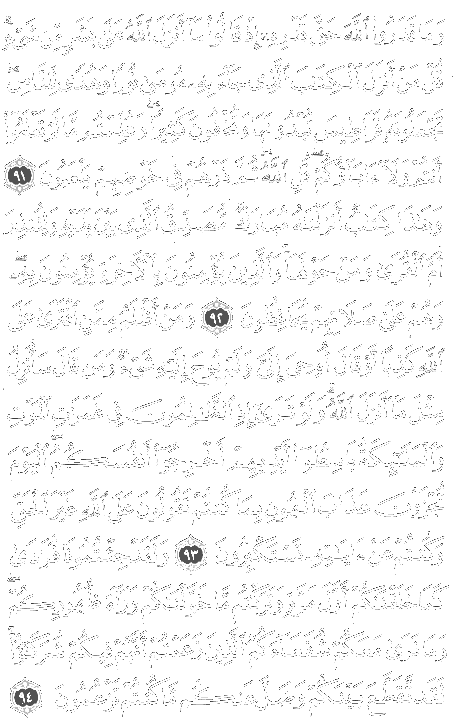 وَمَا قَدَرُوا۟ ٱللَّهَ حَقَّ قَدْرِهِۦٓ إِذْ قَالُوا۟ مَآ أَنزَلَ ٱللَّهُ عَلَىٰ بَشَرٍ مِّن شَىْءٍ
قُلْ مَنْ أَنزَلَ ٱلْكِتَٰبَ ٱلَّذِى جَآءَ بِهِۦ مُوسَىٰ نُورًا وَهُدًى لِّلنَّاسِ
تَجْعَلُونَهُۥ قَرَاطِيسَ تُبْدُونَهَا وَتُخْفُونَ كَثِيرًا وَعُلِّمْتُم مَّا لَمْ تَعْلَمُوٓا۟
أَنتُمْ وَلَآ ءَابَآؤُكُمْ قُلِ ٱللَّهُ ثُمَّ ذَرْهُمْ فِى خَوْضِهِمْ يَلْعَبُونَ ٩١
وَهَٰذَا كِتَٰبٌ أَنزَلْنَٰهُ مُبَارَكٌ مُّصَدِّقُ ٱلَّذِى بَيْنَ يَدَيْهِ وَلِتُنذِرَ
أُمَّ ٱلْقُرَىٰ وَمَنْ حَوْلَهَا وَٱلَّذِينَ يُؤْمِنُونَ بِٱلْءَاخِرَةِ يُؤْمِنُونَ بِهِۦ
وَهُمْ عَلَىٰ صَلَاتِهِمْ يُحَافِظُونَ ٩٢ وَمَنْ أَظْلَمُ مِمَّنِ ٱفْتَرَىٰ عَلَى
ٱللَّهِ كَذِبًا أَوْ قَالَ أُوحِىَ إِلَىَّ وَلَمْ يُوحَ إِلَيْهِ شَىْءٌ وَمَن قَالَ سَأُنزِلُ
مِثْلَ مَآ أَنزَلَ ٱللَّهُ وَلَوْ تَرَىٰٓ إِذِ ٱلظَّٰلِمُونَ فِى غَمَرَٰتِ ٱلْمَوْتِ
وَٱلْمَلَٰٓئِكَةُ بَاسِطُوٓا۟ أَيْدِيهِمْ أَخْرِجُوٓا۟ أَنفُسَكُمُ ٱلْيَوْمَ
تُجْزَوْنَ عَذَابَ ٱلْهُونِ بِمَا كُنتُمْ تَقُولُونَ عَلَى ٱللَّهِ غَيْرَ ٱلْحَقِّ
وَكُنتُمْ عَنْ ءَايَٰتِهِۦ تَسْتَكْبِرُونَ ٩٣ وَلَقَدْ جِئْتُمُونَا فُرَٰدَىٰ
كَمَا خَلَقْنَٰكُمْ أَوَّلَ مَرَّةٍ وَتَرَكْتُم مَّا خَوَّلْنَٰكُمْ وَرَآءَ ظُهُورِكُمْ
وَمَا نَرَىٰ مَعَكُمْ شُفَعَآءَكُمُ ٱلَّذِينَ زَعَمْتُمْ أَنَّهُمْ فِيكُمْ شُرَكَٰٓؤُا۟
لَقَد تَّقَطَّعَ بَيْنَكُمْ وَضَلَّ عَنكُم مَّا كُنتُمْ تَزْعُمُونَ ٩٤